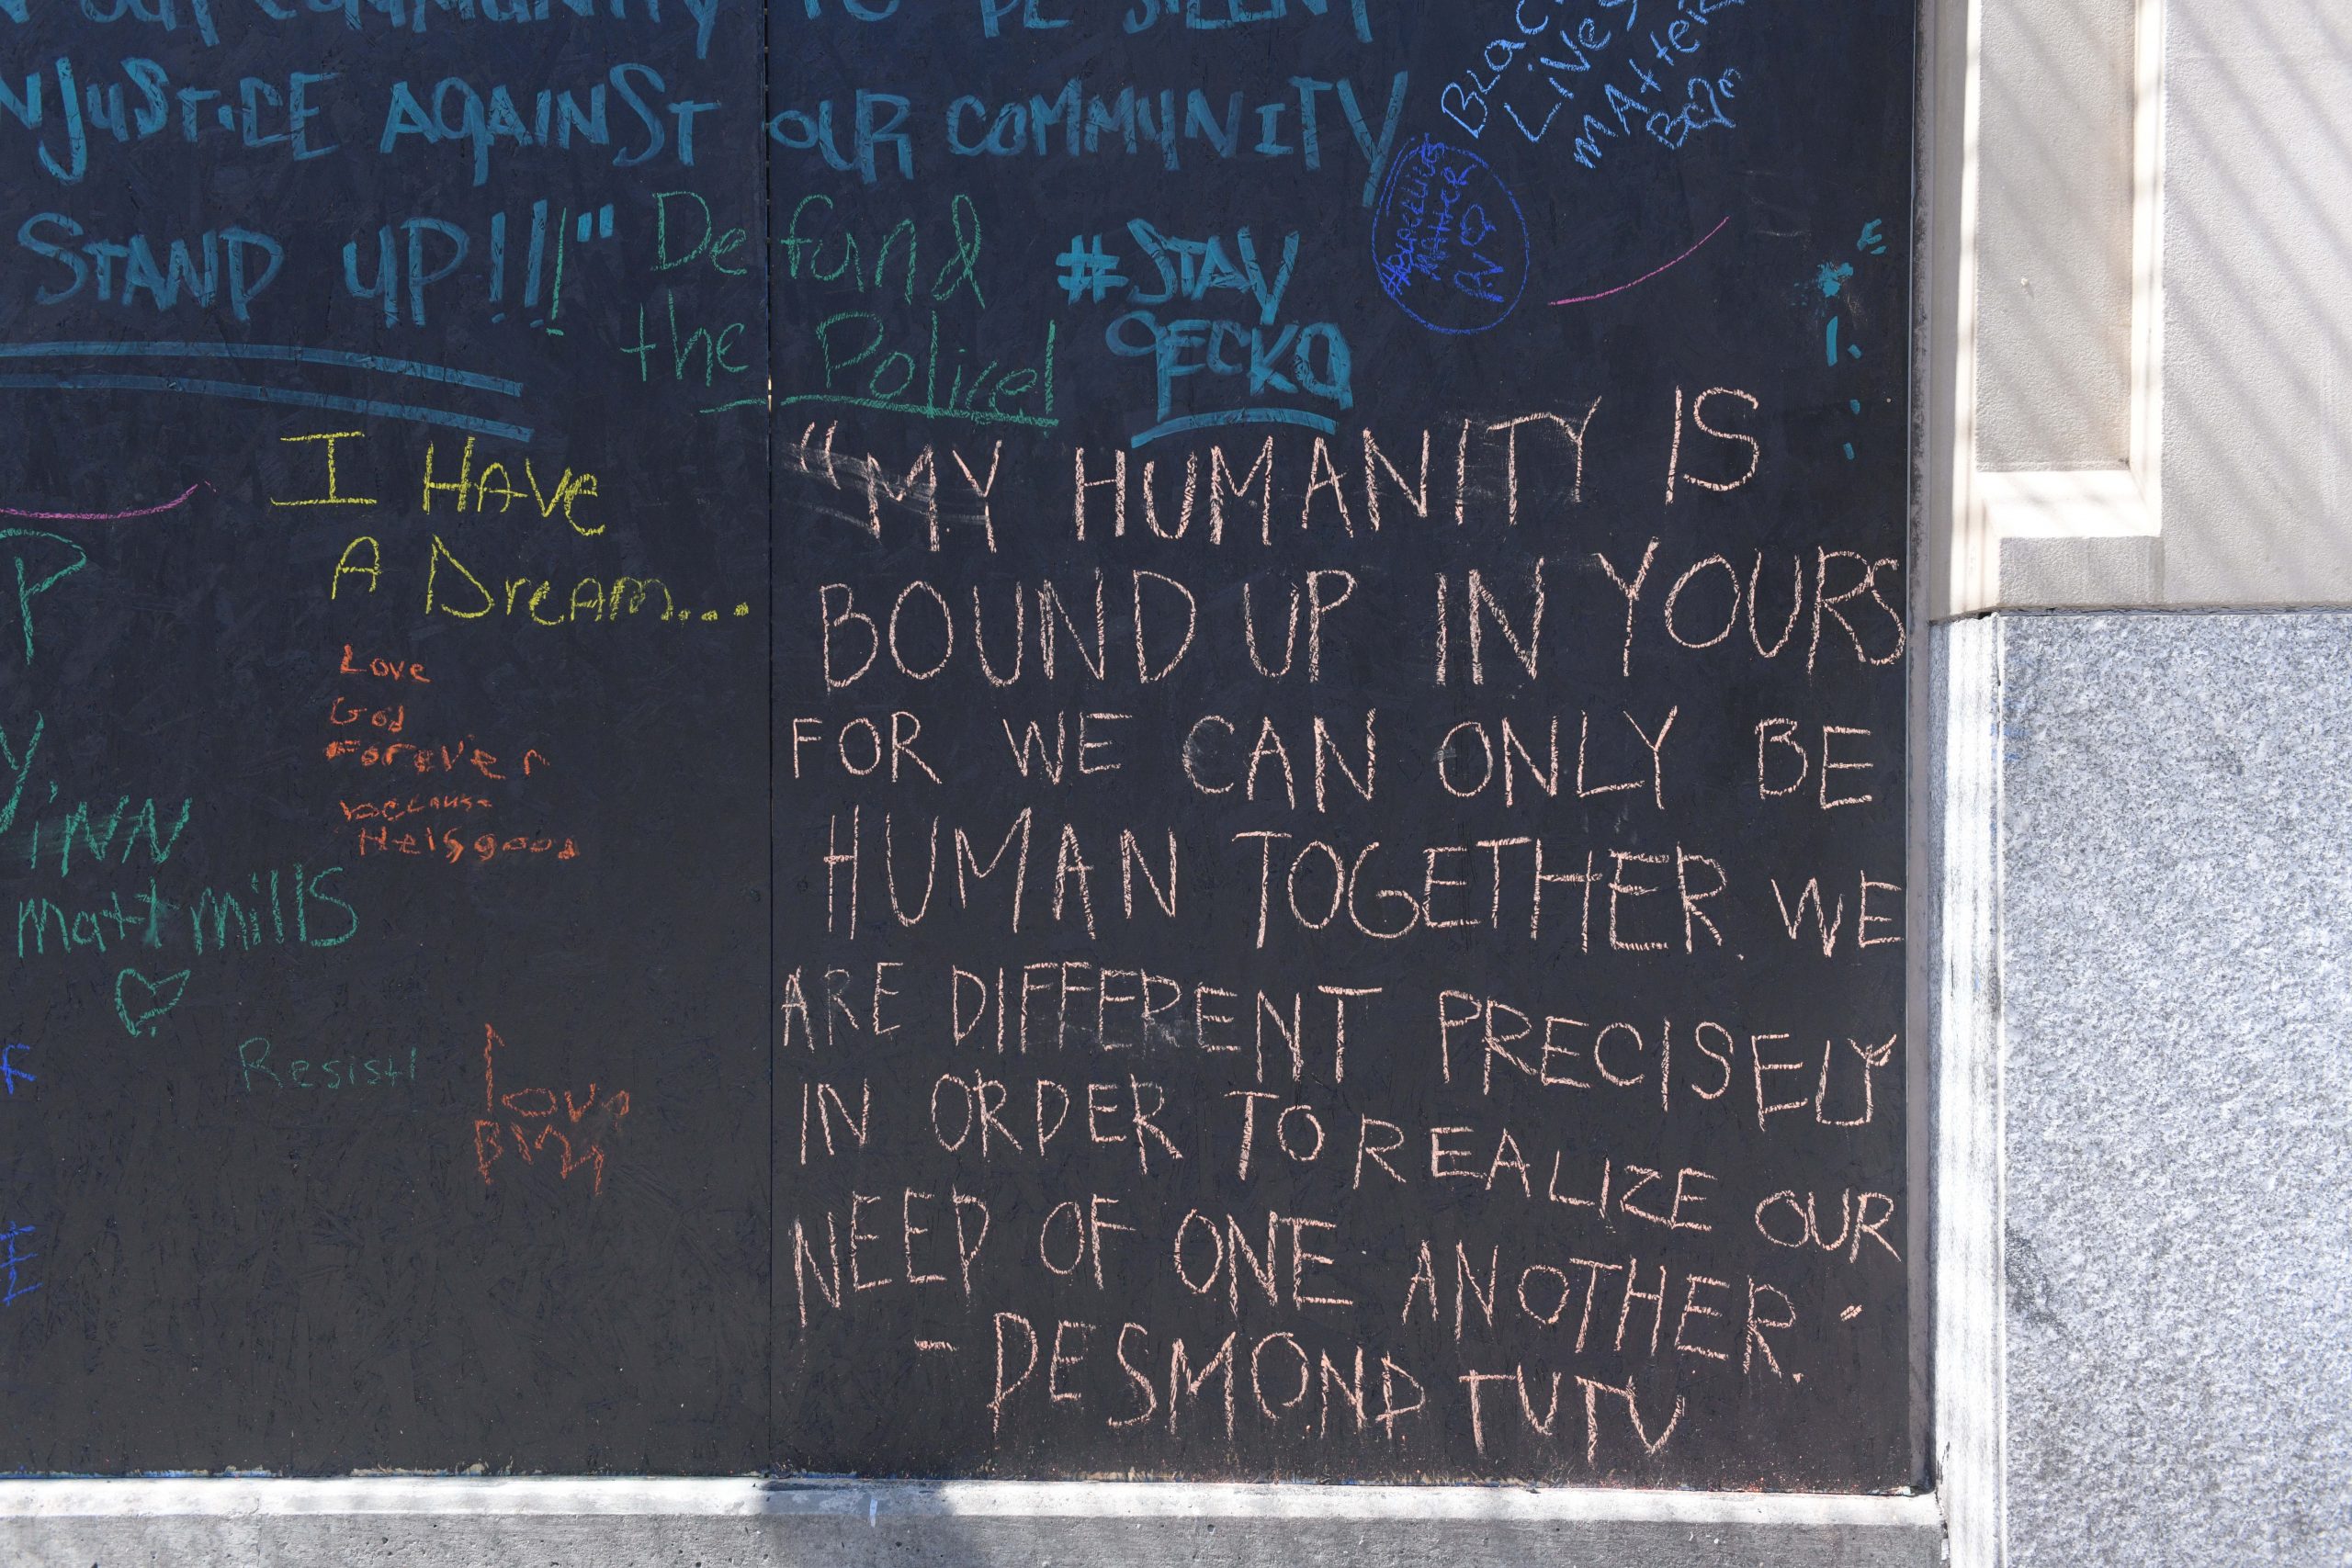 OUR COMMUNITY TO BE SILENT
NJUSTICE AGAINST OUR COMMUNITY
STAND UP!!!"
Defund
the Police!
#STAY
GECKO
BLACK
LIVES
MAtteR
#BLACKLIVES
MATTER
I HAVe
A DreAm...
Love
God
Forever
because
He is good
P
Y
iNN
matt mills
Resist!
love
"MY HUMANITY IS
BOUND UP IN YOURS
FOR WE CAN ONLY BE
HUMAN TOGETHER. WE
ARE DIFFERENT PRECISELY
IN ORDER TO REALIZE OUR
NEED OF ONE ANOTHER."
- DESMOND TUTU